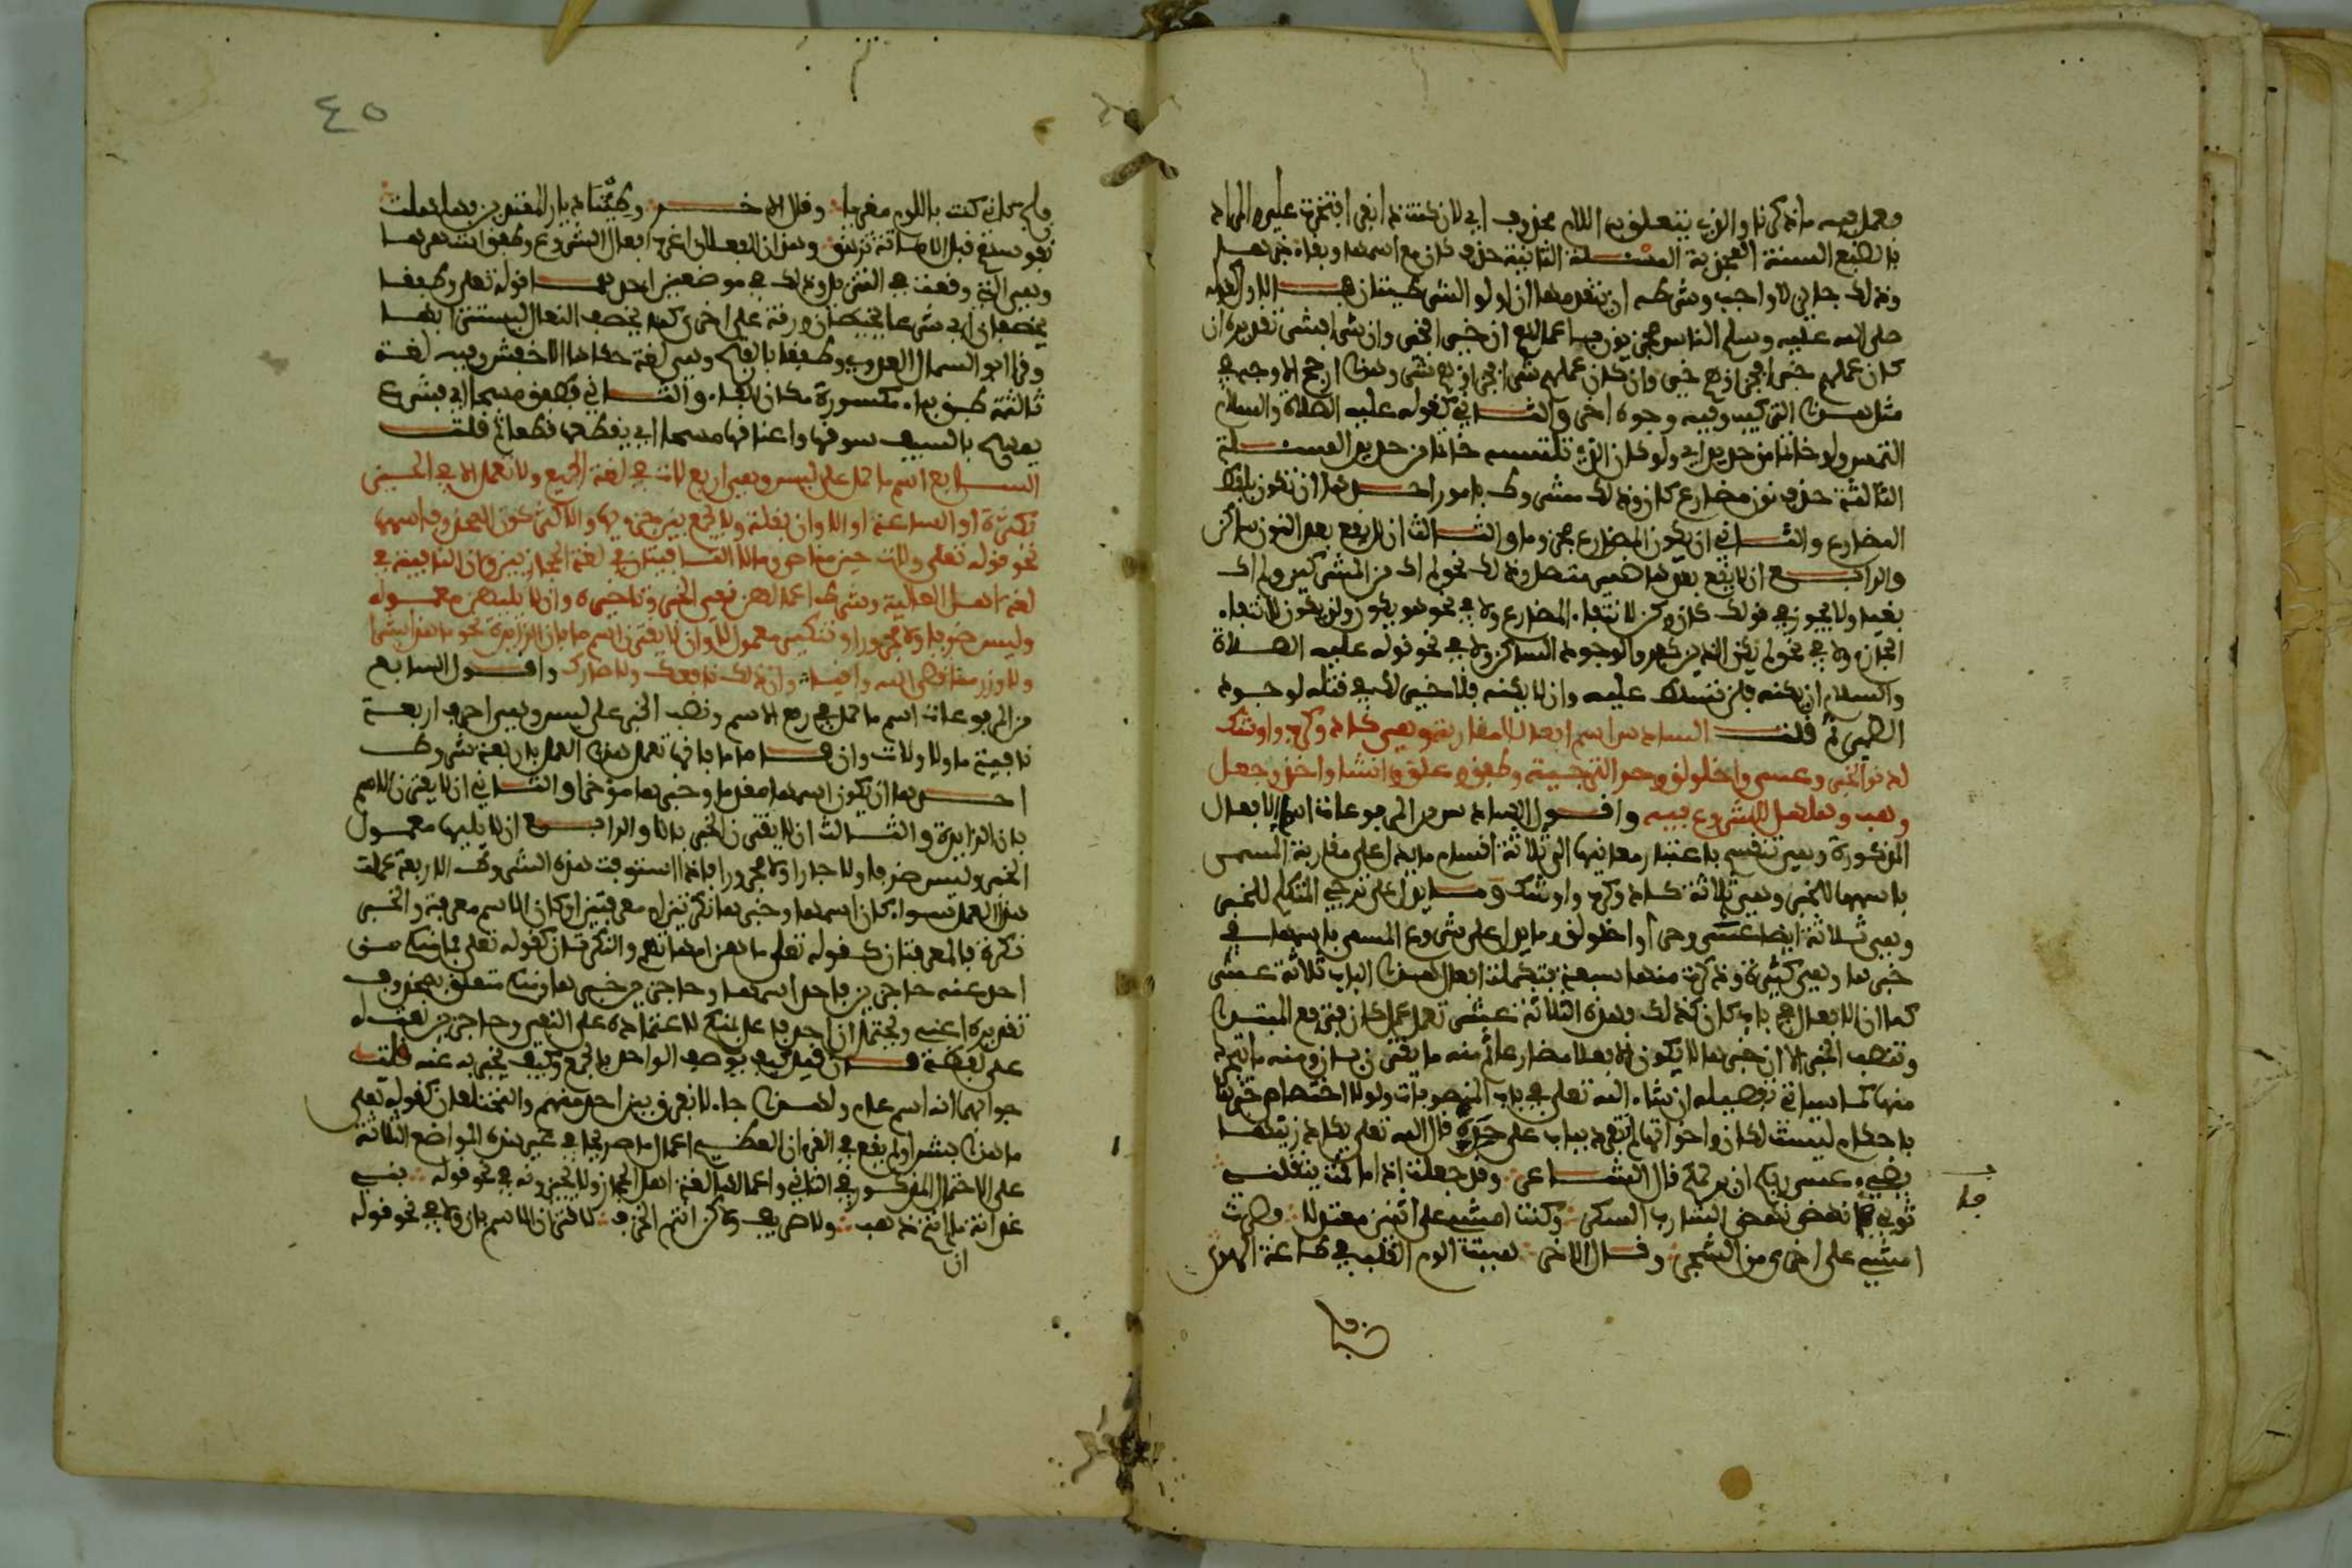 فعمل فيه ما ذكرنا والذي يتعلق به اللام محذوف اي لان كنت ذا نفر افتخرت علي والمراد
بالضبع السنة المجدبة المسئلة الثانية حذف كان مع اسمها وبقاء خبرها
وذلك جايز لا واجب وشرطه ان يتقدمها ان او لو الشرطيتان فالاول كقوله
صلى الله عليه وسلم الناس مجزيون باعمالهم ان خيرا فخير وان شرا فشر تقديره ان
كان عملهم خيرا فجزاؤهم خير وان كان عملهم شرا فجزاؤهم شر وهذا ارجح الاوجه في
مثل هذا التركيب وفيه وجوه اخر والثاني كقوله عليه الصلاة والسلام
التمس ولو خاتما من حديد اي ولو كان الذي تلتمسه خاتما من حديد المسئلة
الثالثة حذف نون مضارع كان وذلك مشروط بامور احدها ان تكون بلفظ
المضارع والثاني ان يكون المضارع مجزوما والثالث ان لا يقع بعد النون ساكن
والرابع ان لا يقع بعدها ضمير متصل وذلك نحو لم اك من المشركين ولم اك
بغيا ولا يجوز في قولك كان وكن لانتفاء المضارع ولا في نحو هو يكون ولن يكون لانتفاء
الجازم ولا في نحو لم يكن الذين كفروا لوجود الساكن ولا في نحو قوله عليه الصلاة
والسلام ان يكنه فلن تسلط عليه وان لا يكنه فلا خير لك في قتله لوجود
الضمير ثم قلت السادس اسم افعال المقاربة وهي كاد وكرب واوشك
لدنو الخبر وعسى واخلولق وحرى لترجيه وطفق وعلق وانشا واخذ وجعل
وهب وهلهل للشروع فيه واقول السادس من المرفوعات اسم الافعال
المذكورة وهي تنقسم باعتبار معانيها الى ثلاثة اقسام ما يدل على مقاربة المسمى
باسمها للخبر وهي ثلاثة كاد وكرب واوشك وما يدل على ترجي المتكلم للخبر
وهي ثلاثة ايضا عسى وحرى واخلولق وما يدل على شروع المسمى باسمها في
خبرها وهي كثيرة وذكرت منها سبعة فتكملت افعال هذا الباب ثلاثة عشر
كما ان الافعال في باب كان كذلك وهذه الثلاثة عشر تعمل عمل كان فترفع المبتدا
وتنصب الخبر الا ان خبرها لا يكون الا فعلا مضارعا ثم منه ما يقترن بان ومنه ما يتجرد
منها كما سياتي تفصيله ان شاء الله تعلى في باب المنصوبات ولولا اختصاص خبرها
باحكام ليست لكان واخواتها لم تنفرد بباب على حدة قال الله تعلى يكاد زيتها
يضيء عسى ربكم ان يرحمكم قال الشاعر وقد جعلت اذا ما قمت يثقلني
ثوبي فانهض نهض الشارب السكر وكنت امشي على اثنين معتدلا فصرت
امشي على اخرى من الشجر وقال الاخر هببت الوم القلب في طاعة الهوى
فلج
فلج كاني كنت باللوم مغريا وقال الاخر وطئنا ديار المعتدين فهلهلت
نفوسهم قبل الاماتة تزهق وهذان الفعلان اغرب افعال الشروع وطفق اشهرها
وهي التي وقعت في التنزيل وذلك في موضعين احدهما قوله تعلى وطفقا
يخصفان اي شرعا يخيطان ورقة على اخرى كما يخصف النعال ليستترا بها
وقرا ابو السمال العدوي وطفقا بالفتح وهي لغة حكاها الاخفش وفيه لغة
ثالثة طبق بباء مكسورة مكان الفاء والثاني فطفق مسحا اي فشرع
يمسح بالسيف سوقها واعناقها مسحا اي يقطعها قطعا ثم قلت
السابع اسم ما حمل على ليس وهي اربع لات في لغة الجميع ولا تعمل الا في الحين
بكثرة او الساعة او الاوان بقلة ولا يجمع بين جزءيها والاكثر كون المحذوف اسمها
نحو قوله تعلى ولات حين مناص وما ولا النافيتان في لغة الحجازيين وان النافية في
لغة اهل العالية وشرط اعمالهن نفي الخبر وتاخيره وان لا يليهن معموله
وليس ظرفا ولا مجرورا وتنكير معمولي لا وان لا يقترن اسم ما بان الزايدة نحو ما هذا بشرا
ولا وزر مما قضى الله واقيا وان ذلك نافعك ولا ضارك واقول السابع
من المرفوعات اسم ما حمل في رفع الاسم ونصب الخبر على ليس وهي احرف اربعة
نافية ما ولا ولات وان فاما ما فانها تعمل هذا العمل باربعة شروط
احدها ان يكون اسمها مقدما وخبرها مؤخرا والثاني ان لا يقترن الاسم
بان الزايدة والثالث ان لا يقترن الخبر بالا والرابع ان لا يليها معمول
الخبر وليس ظرفا ولا جارا ولا مجرورا فاذا استوفت هذه الشروط الاربعة عملت
هذا العمل سواء كان اسمها وخبرها نكرتين او معرفتين او كان الاسم معرفة والخبر
نكرة فالمعرفتان كقوله تعلى ما هن امهاتهم والنكرتان كقوله تعلى فما منكم من
احد عنه حاجزين فاحد اسمها وحاجزين خبرها ومنكم متعلق بمحذوف
تقديره اعني ويحتمل ان احد فاعل منكم لاعتماده على النفي وحاجزين نعت له
على لفظه فان قيل كيف يوصف الواحد بالجمع وكيف يخبر به عنه قلت
جوابهما انه اسم عام ولهذا جاء لا نفرق بين احد منهم والمختلفان كقوله تعلى
ما هذا بشرا ولم يقع في القرءان العظيم اعمال ما صريحا في غير هذه المواضع الثلاثة
على الاحتمال المذكور في الثاني واعمالها لغة اهل الحجاز ولا يجيزونه في نحو قوله بني
غدانة ما ان انتم ذهب ولا صريف ولاكن انتم الخزف لاقتران الاسم بان ولا في نحو قوله
ان
٤٥